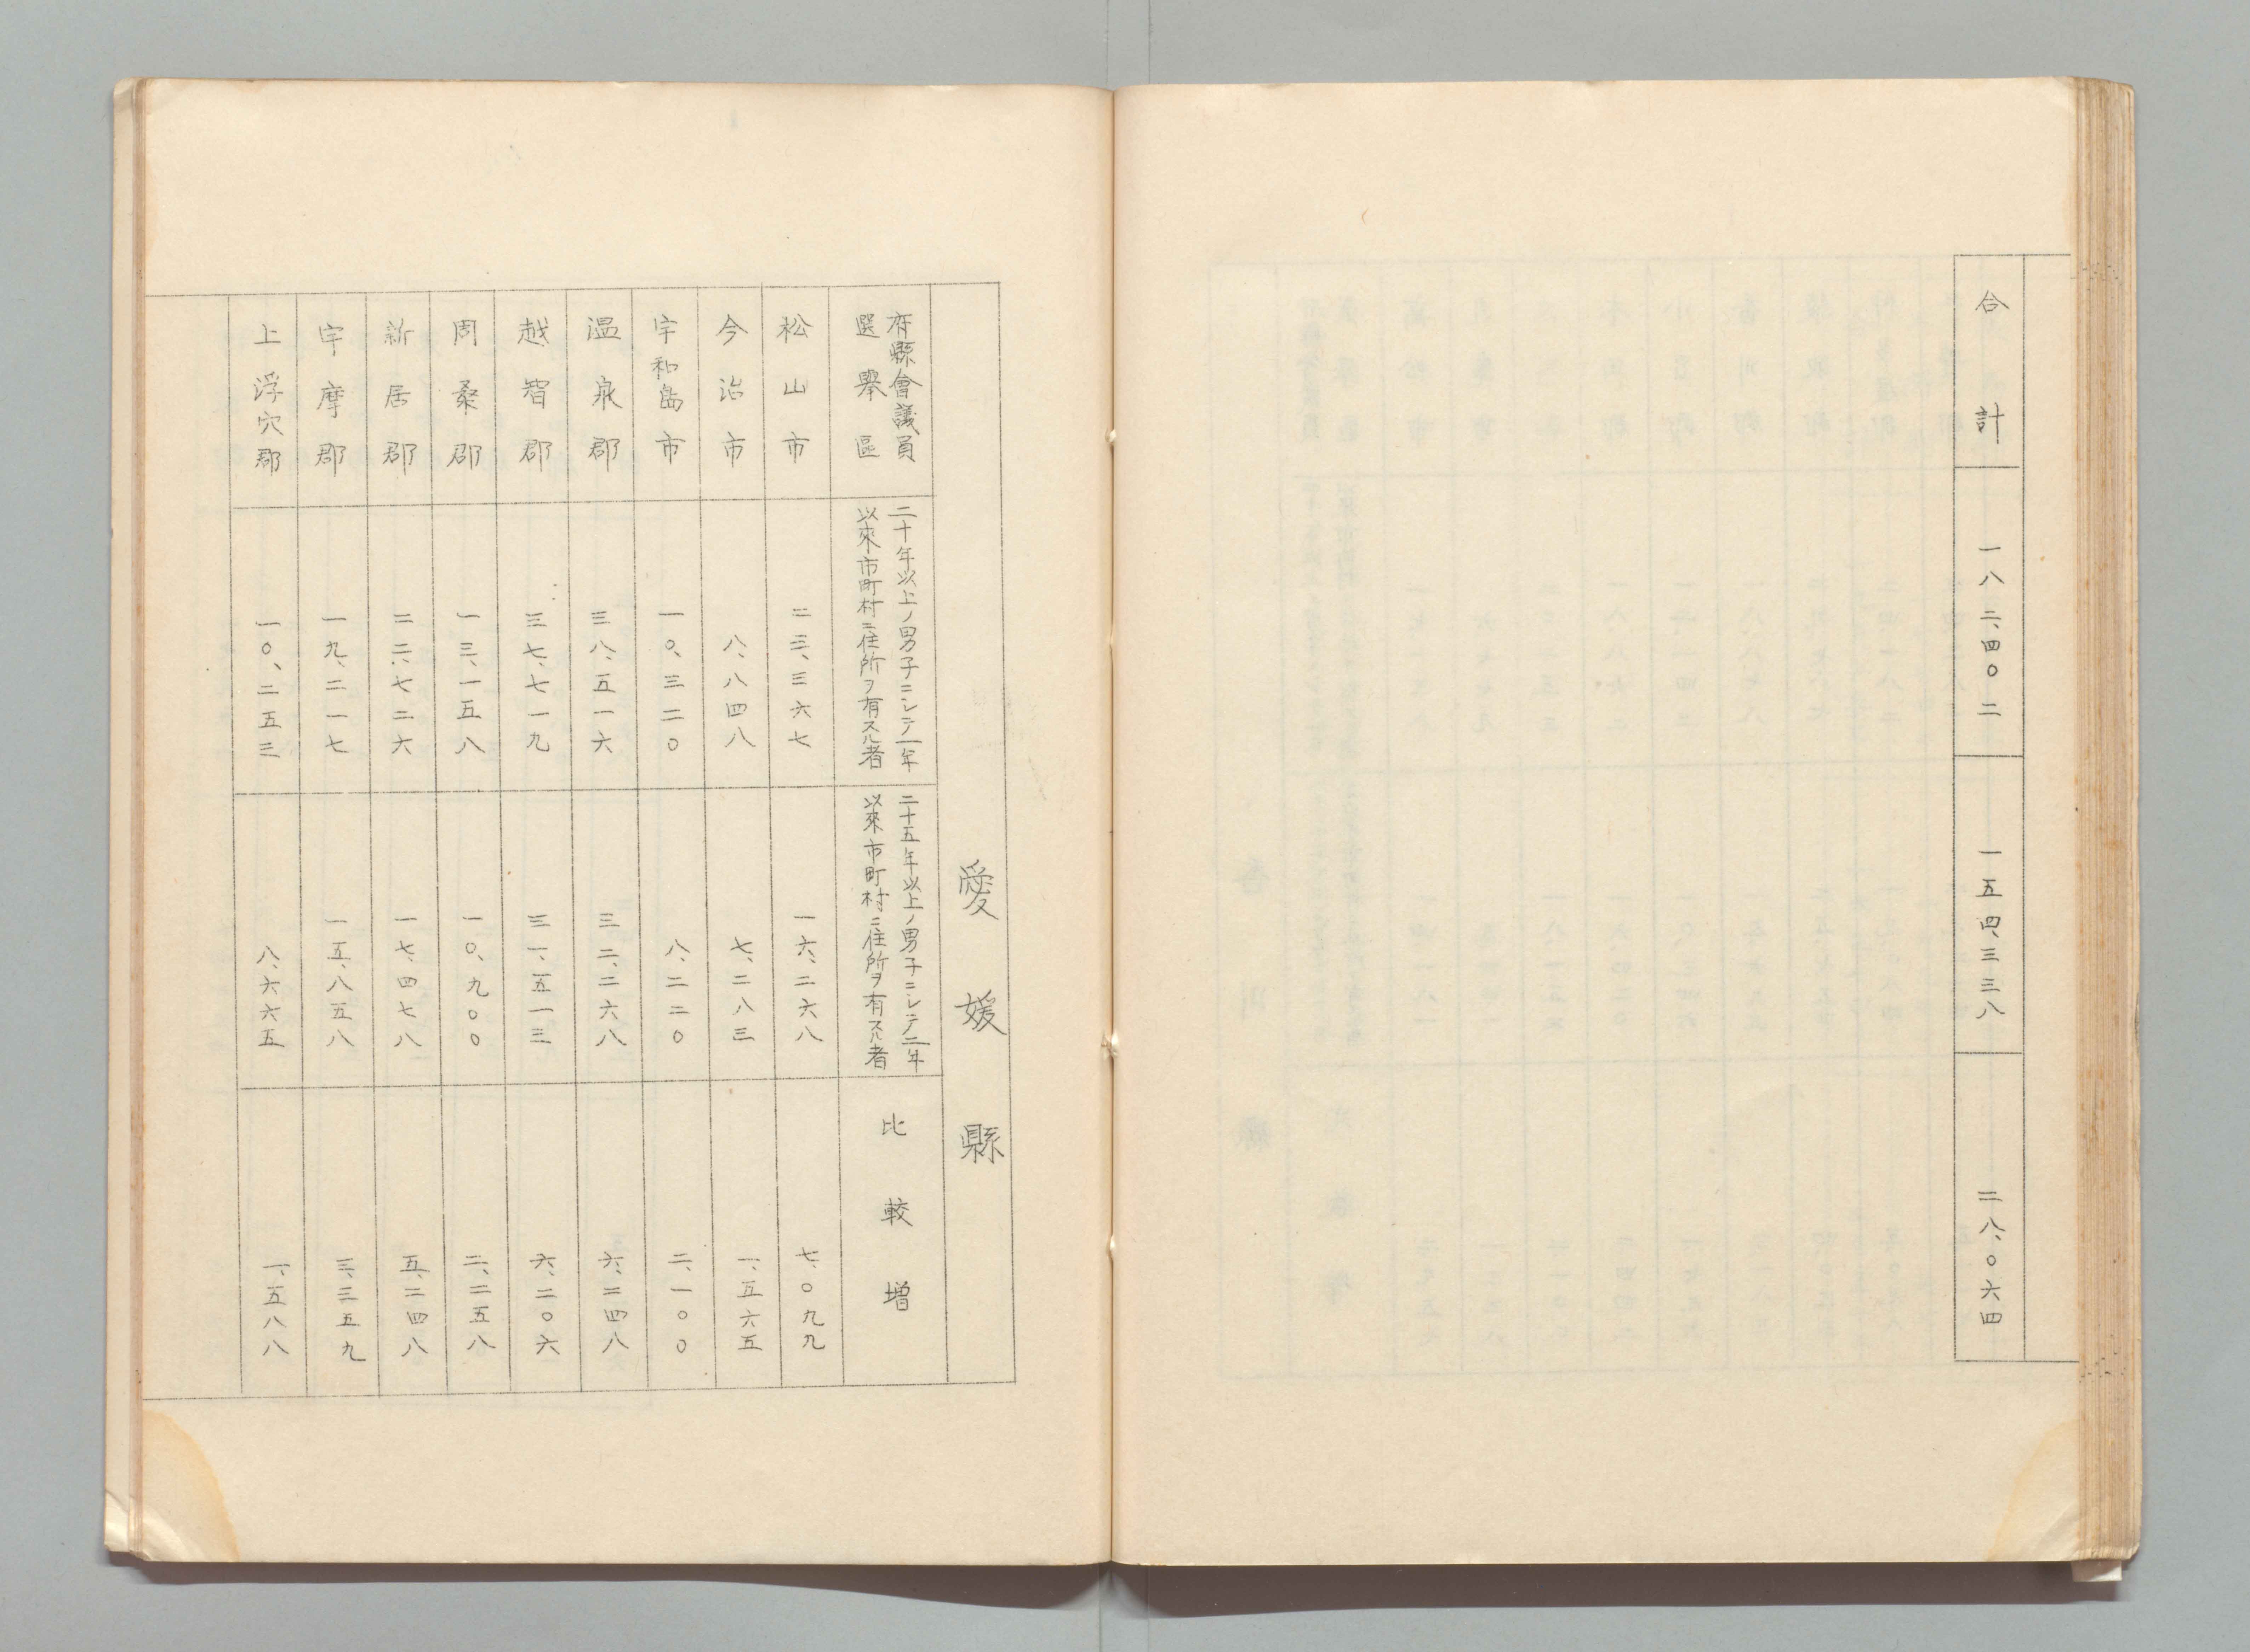 合計 一八二、四〇二 一五四、三三八 二八、〇六四
愛媛縣
府縣會議員
選擧區
二十年以上ノ男子ニシテ一年
以來市町村ニ住所ヲ有スル者
二十五年以上ノ男子ニシテ二年
以來市町村ニ住所ヲ有スル者
比較増
松山市 二三、三六七 一六、二六八 七、〇九九
今治市 八、八四八 七、二八三 一、五六五
宇和島市 一〇、三二〇 八、二二〇 二、一〇〇
温泉郡 三八、五一六 三二、二六八 六、二四八
越智郡 三七、七一九 三一、五一三 六、二〇六
周桑郡 一三、一五八 一〇、九〇〇 二、二五八
新居郡 二二、七二六 一七、四七八 五、二四八
宇摩郡 一九、二一七 一五、八五八 三、三五九
上浮穴郡 一〇、二五三 八、六六五 一、五八八